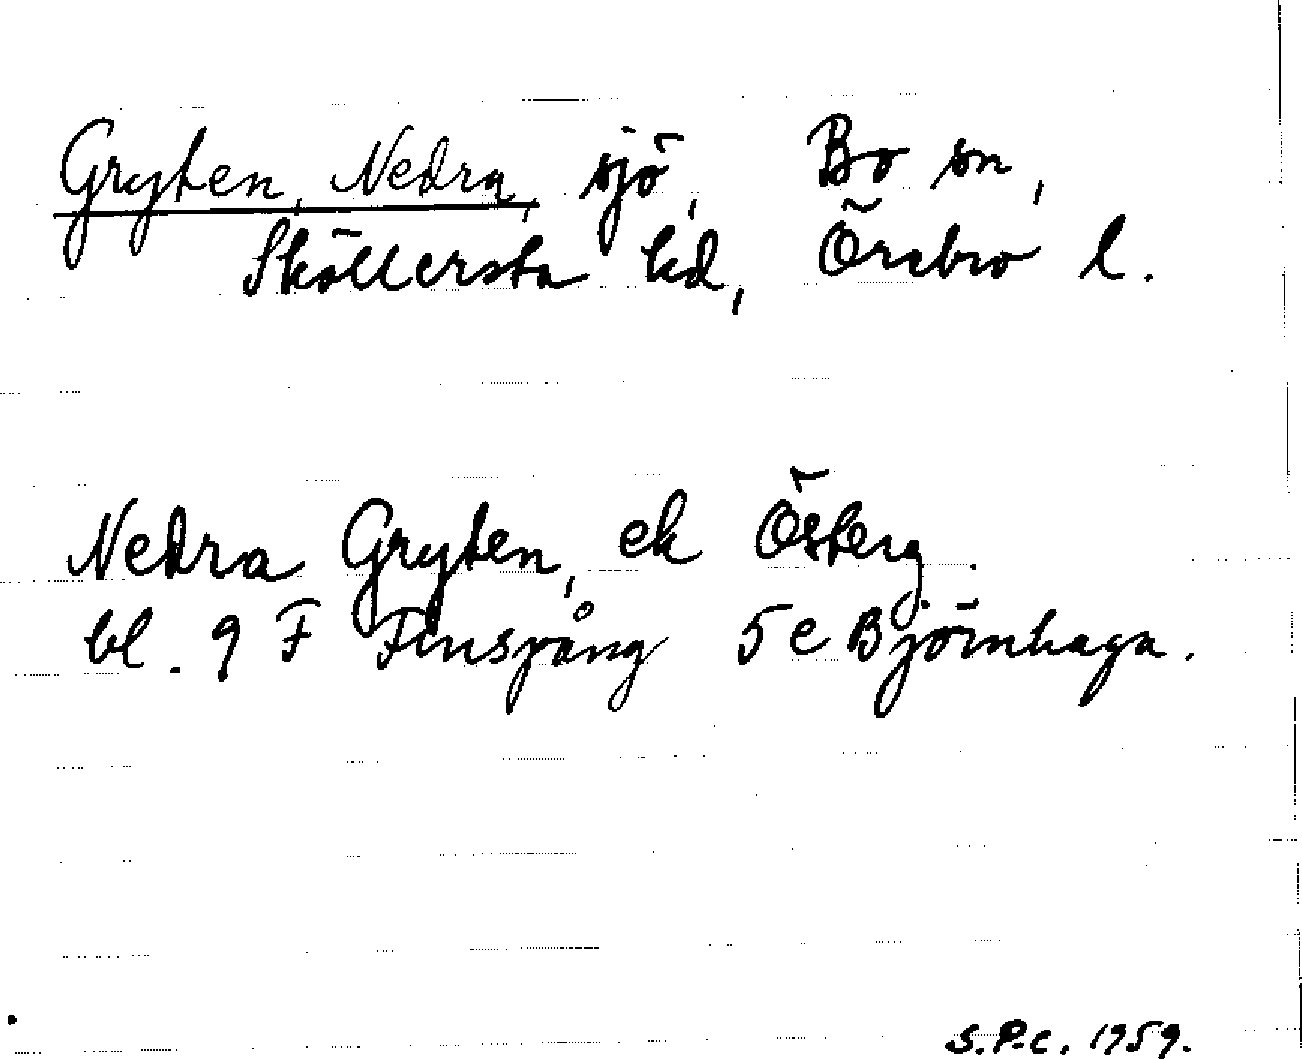 Gryten, Nedra, sjö, Bo sn,
Sköllersta hd, Örebro l.
Nedra Gryten, ek Österg.
bl. 9 F Finspång 5 e Björnhaga.
S.P.C. 1959.